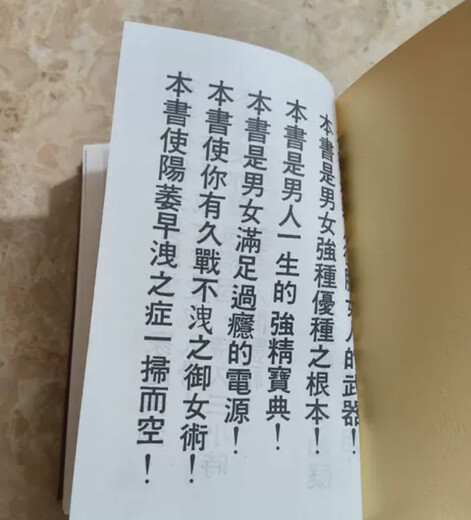 人的武器！
本書是男女強種優種之根本！
本書是男人一生的強精寶典！
本書是男女滿足過癮的電源！
本書使你有久戰不洩之御女術！
本書使陽萎早洩之症一掃而空！